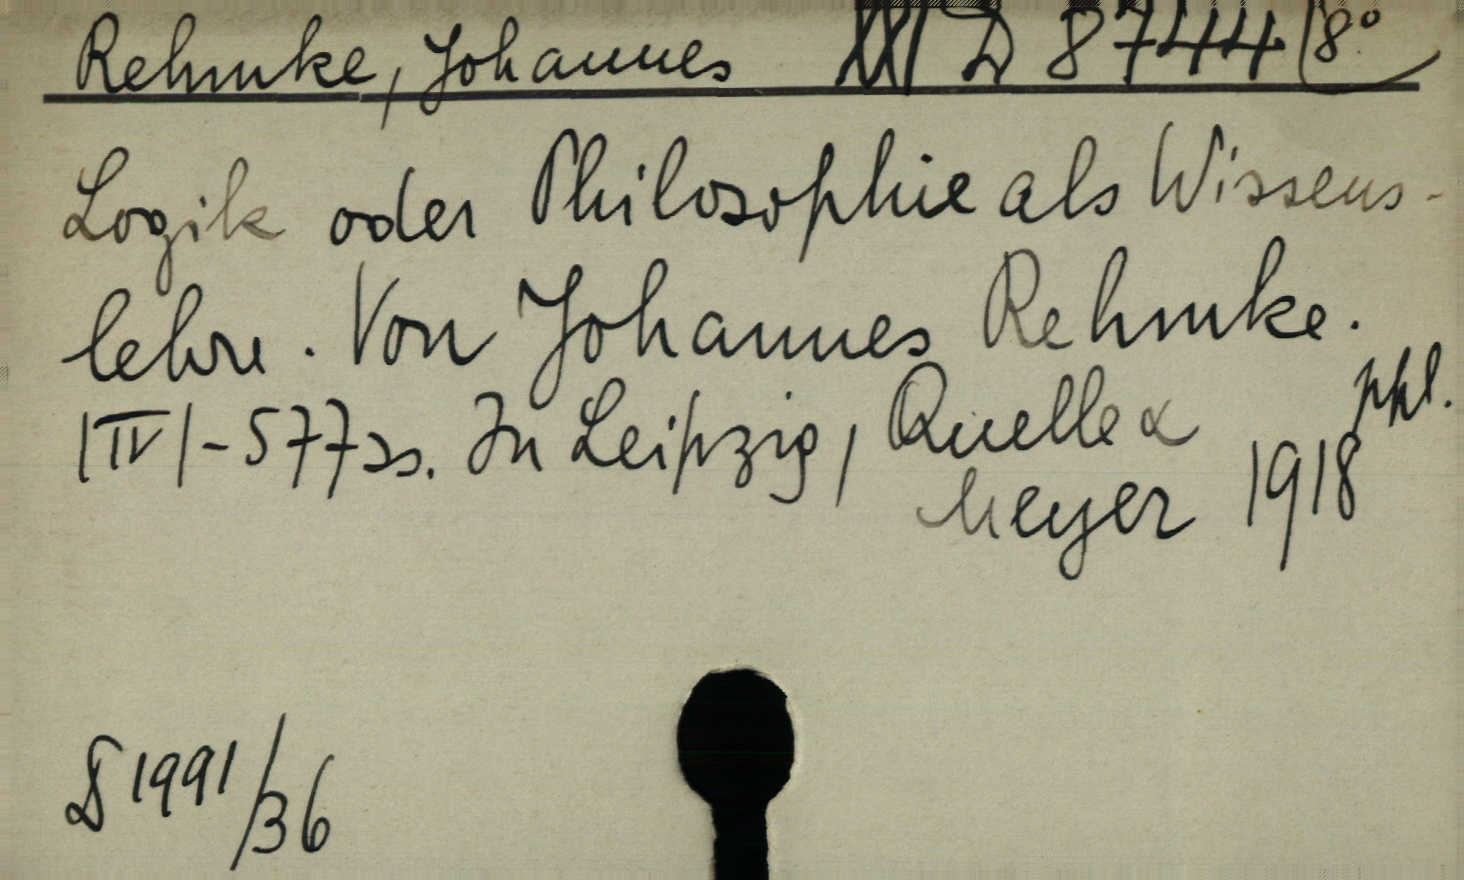 Rehmke, Johannes XXI D 8744 (8°
Logik oder Philosophie als Wissens-
lehre. Von Johannes Rehmke.
|IV|-577 s. In Leipzig, Quelle &
Meyer 1918 pkl.
D 1991/36